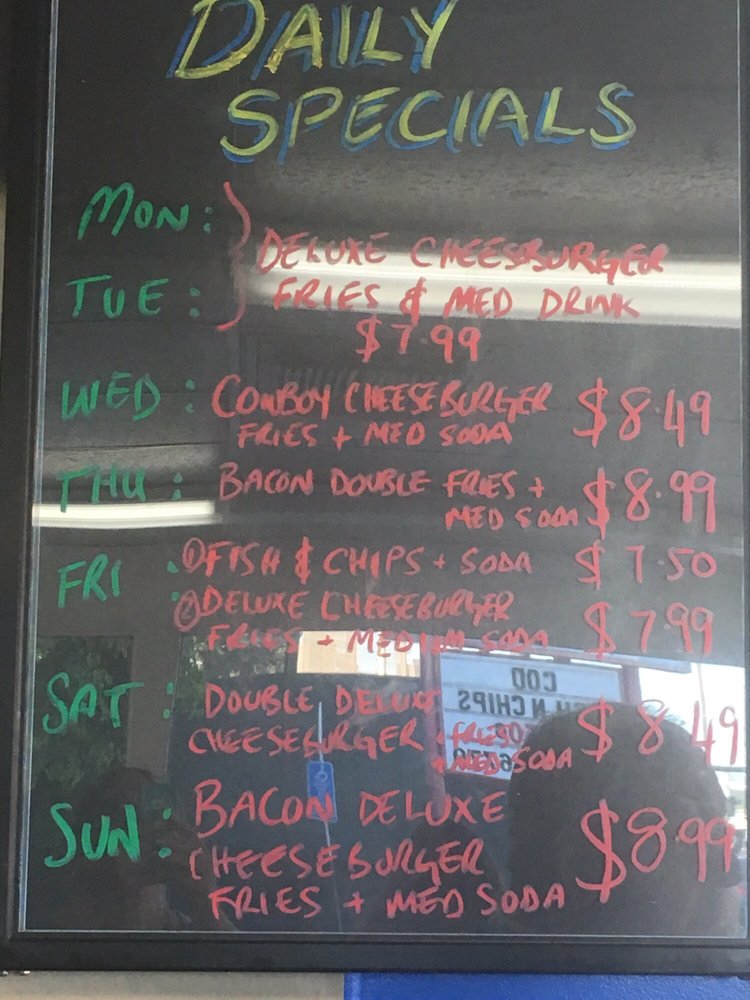 DAILY
SPECIALS
MON:
TUE:
DELUXE CHEESEBURGER
FRIES & MED DRINK
$7.99
WED: COWBOY CHEESEBURGER $8.49
FRIES + MED SODA
THU: BACON DOUBLE FRIES + $8.99
MED SODA
FRI : ① FISH & CHIPS + SODA $7.50
② DELUXE CHEESEBURGER $7.99
FRIES + MEDIUM SODA
SAT: DOUBLE DELUXE $8.49
CHEESEBURGER + FRIES
+ MED SODA
SUN: BACON DELUXE $8.99
CHEESEBURGER
FRIES + MED SODA
COD
N CHIPS